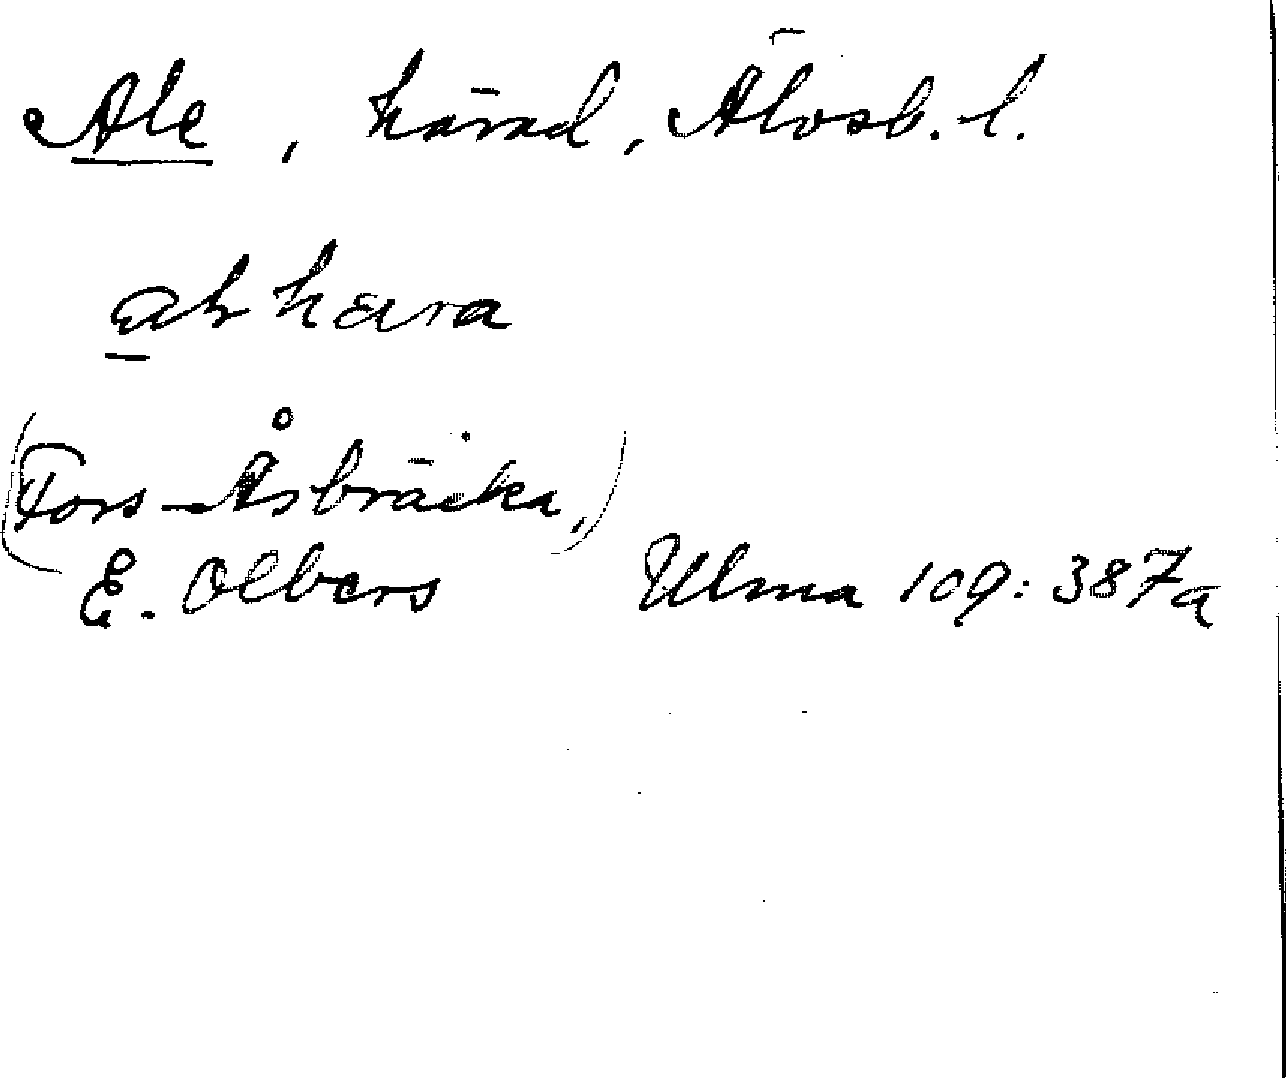 Ale, härad, Älvsb. l.
(Fors-Åsbräcka,)
E. Olbers Ulma 109: 387a